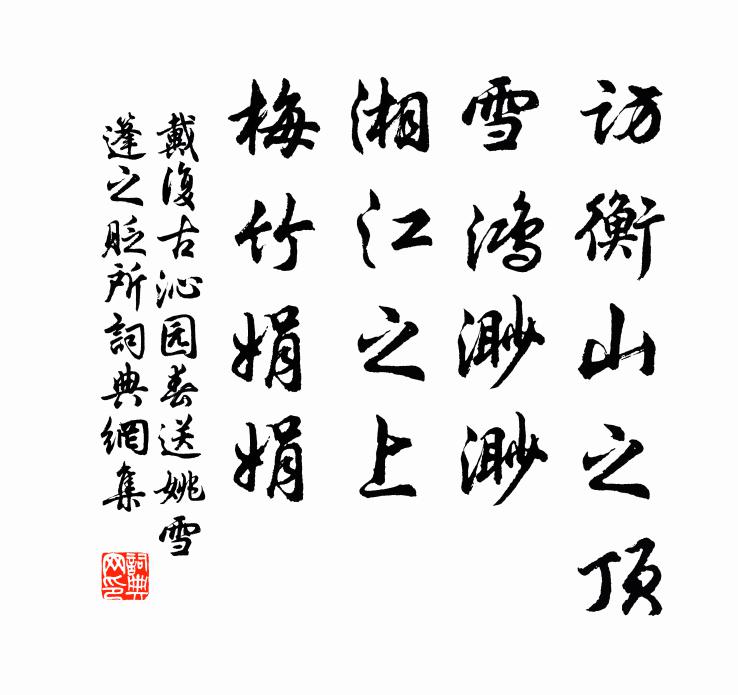 访衡山之顶
雪鸿渺渺
湘江之上
梅竹娟娟
戴復古沁园春送姚雪
蓬之贬所詞典網集
詞典
网印